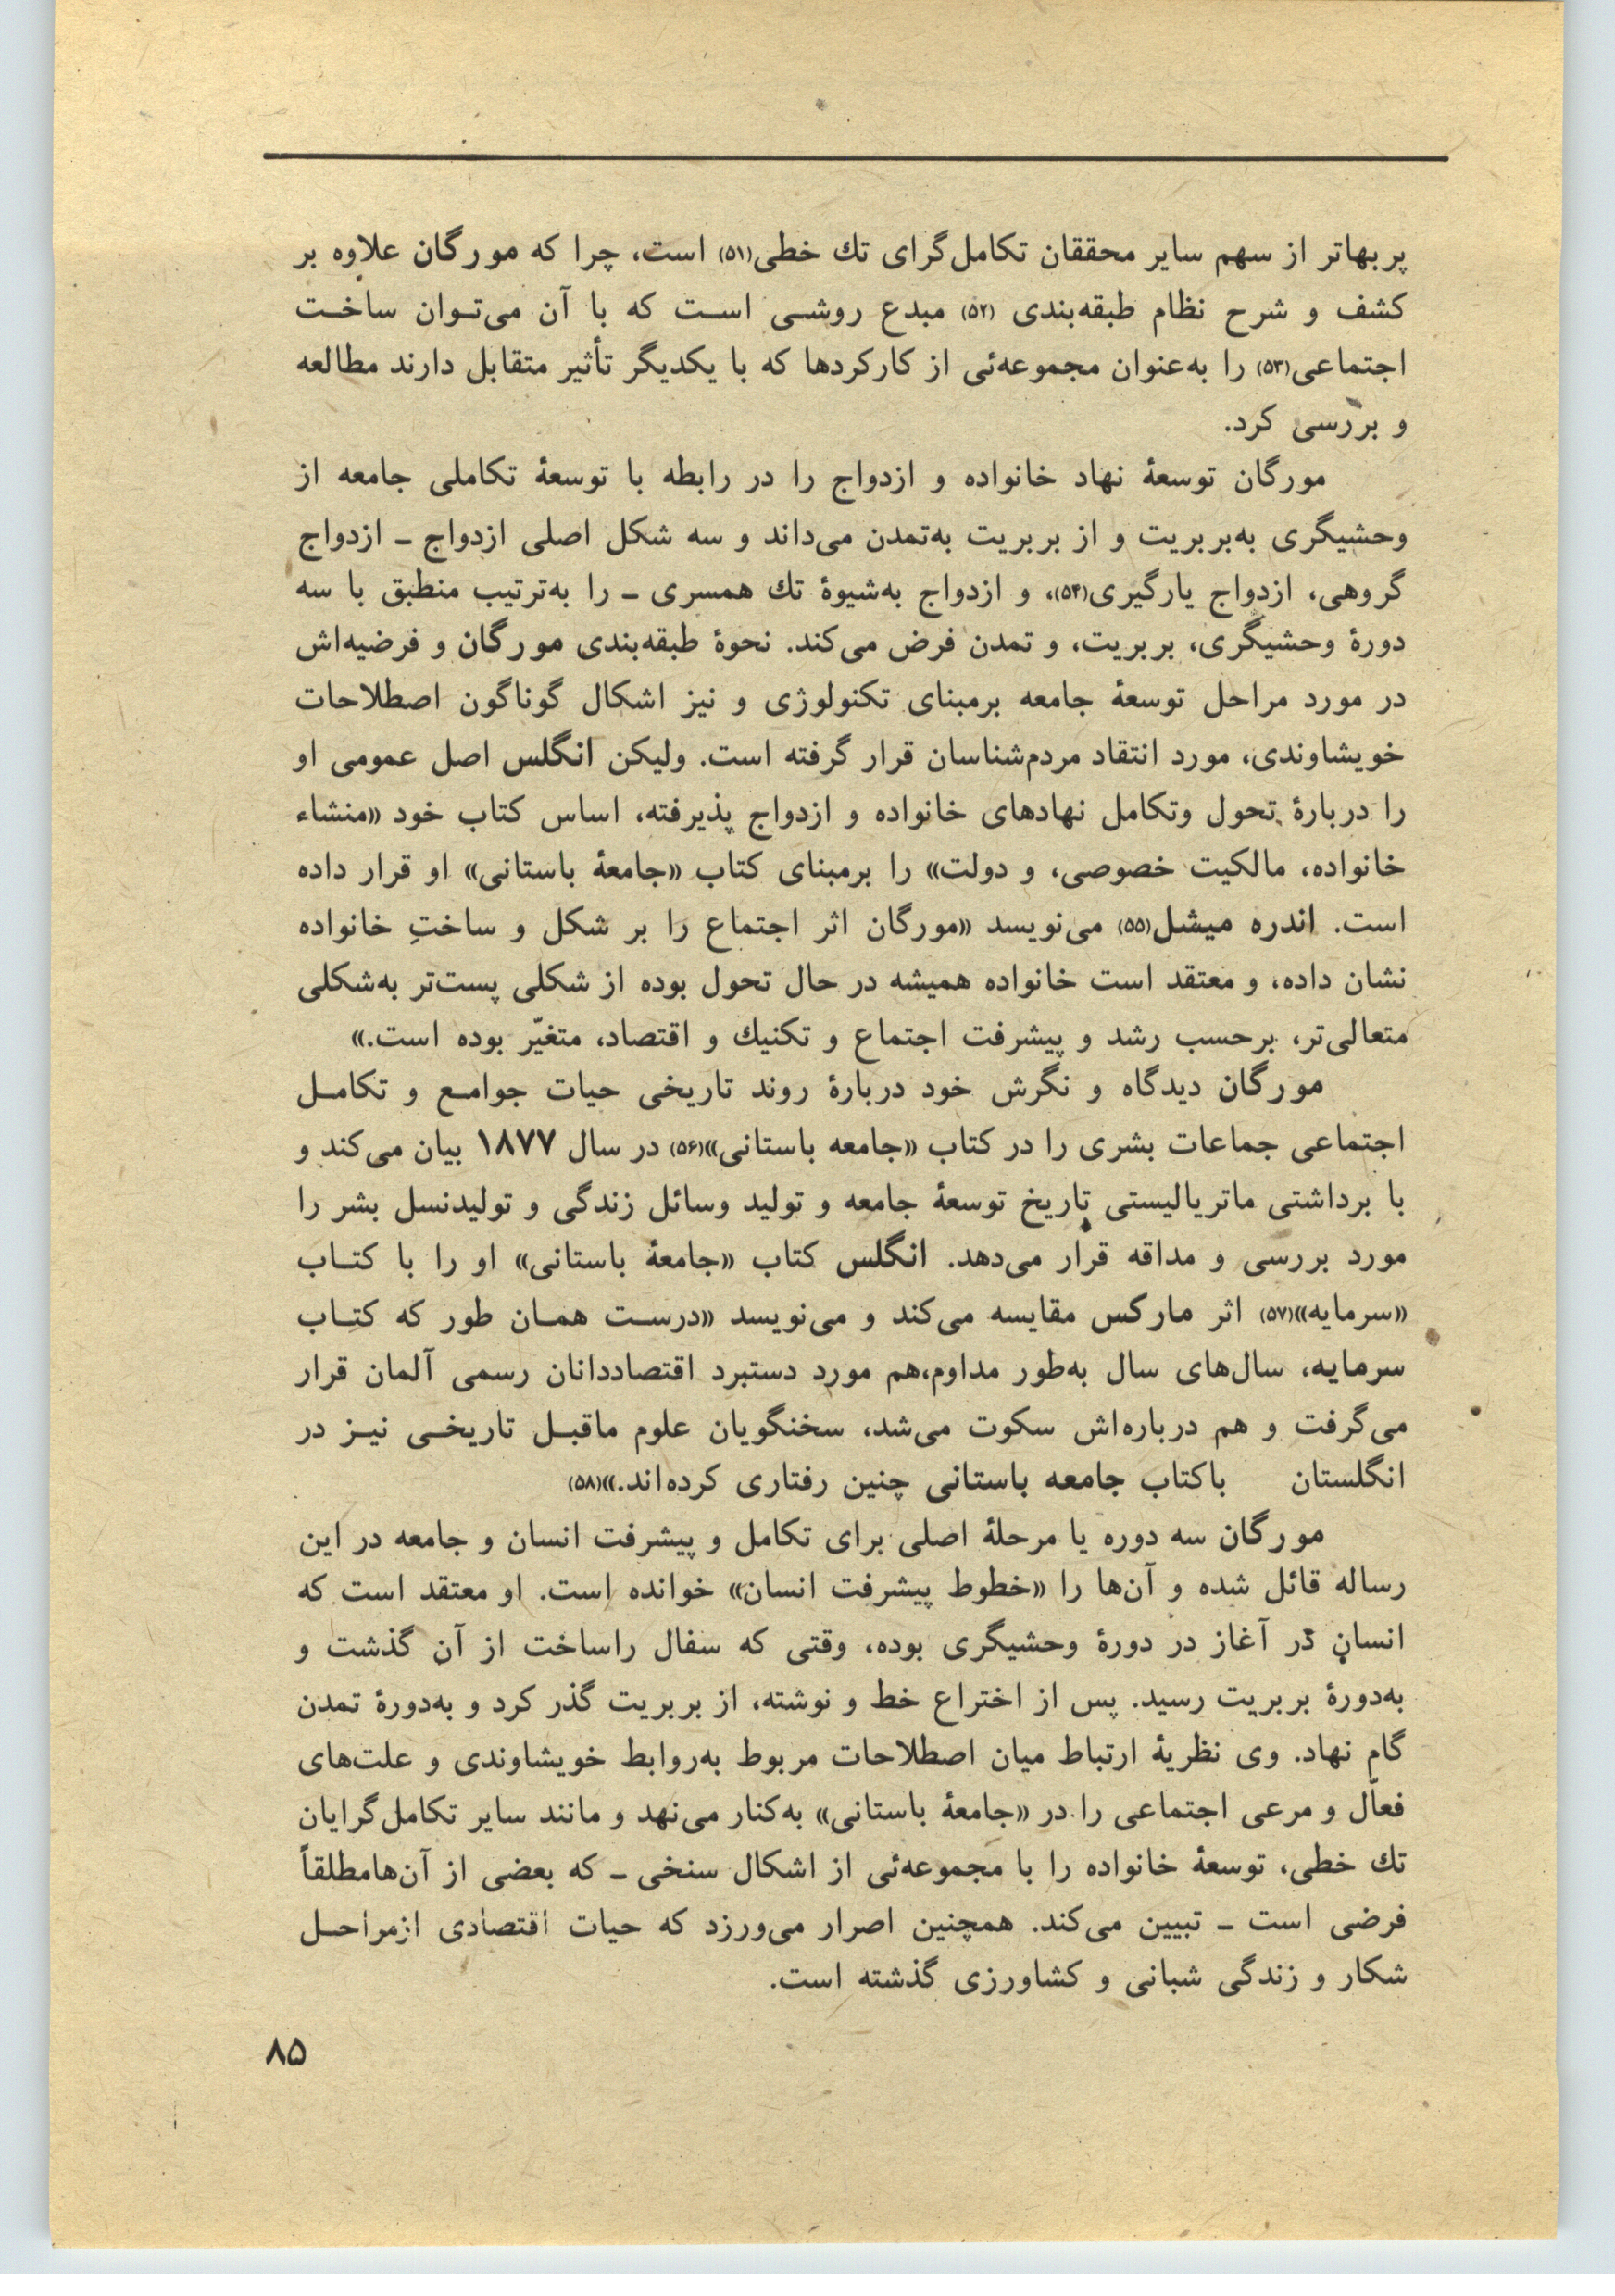 پربهاتر از سهم سایر محققان تکامل‌گرای تك خطی(۵۱) است، چرا که مورگان علاوه بر
کشف و شرح نظام طبقه‌بندی (۵۲) مبدع روشی است که با آن می‌توان ساخت
اجتماعی(۵۳) را به‌عنوان مجموعه‌ئی از کارکردها که با یکدیگر تأثیر متقابل دارند مطالعه
و بررسی کرد.
مورگان توسعهٔ نهاد خانواده و ازدواج را در رابطه با توسعهٔ تکاملی جامعه از
وحشیگری به‌بربریت و از بربریت به‌تمدن می‌داند و سه شکل اصلی ازدواج ـ ازدواج
گروهی، ازدواج یارگیری(۵۴)، و ازدواج به‌شیوهٔ تك همسری ـ را به‌ترتیب منطبق با سه
دورهٔ وحشیگری، بربریت، و تمدن فرض می‌کند. نحوهٔ طبقه‌بندی مورگان و فرضیه‌اش
در مورد مراحل توسعهٔ جامعه برمبنای تکنولوژی و نیز اشکال گوناگون اصطلاحات
خویشاوندی، مورد انتقاد مردم‌شناسان قرار گرفته است. ولیکن انگلس اصل عمومی او
را دربارهٔ تحول وتکامل نهادهای خانواده و ازدواج پذیرفته، اساس کتاب خود «منشاء
خانواده، مالکیت خصوصی، و دولت» را برمبنای کتاب «جامعهٔ باستانی» او قرار داده
است. اندره میشل(۵۵) می‌نویسد «مورگان اثر اجتماع را بر شکل و ساختِ خانواده
نشان داده، و معتقد است خانواده همیشه در حال تحول بوده از شکلی پست‌تر به‌شکلی
متعالی‌تر، برحسب رشد و پیشرفت اجتماع و تکنیك و اقتصاد، متغیّر بوده است.»
مورگان دیدگاه و نگرش خود دربارهٔ روند تاریخی حیات جوامع و تکامل
اجتماعی جماعات بشری را در کتاب «جامعه باستانی»(۵۶) در سال ۱۸۷۷ بیان می‌کند و
با برداشتی ماتریالیستی تاریخ توسعهٔ جامعه و تولید وسائل زندگی و تولیدنسل بشر را
مورد بررسی و مداقه قرار می‌دهد. انگلس کتاب «جامعهٔ باستانی» او را با کتاب
«سرمایه»(۵۷) اثر مارکس مقایسه می‌کند و می‌نویسد «درست همان طور که کتاب
سرمایه، سال‌های سال به‌طور مداوم،هم مورد دستبرد اقتصاددانان رسمی آلمان قرار
می‌گرفت و هم درباره‌اش سکوت می‌شد، سخنگویان علوم ماقبل تاریخی نیز در
انگلستان باکتاب جامعه باستانی چنین رفتاری کرده‌اند.»(۵۸)
مورگان سه دوره یا مرحلهٔ اصلی برای تکامل و پیشرفت انسان و جامعه در این
رساله قائل شده و آن‌ها را «خطوط پیشرفت انسان» خوانده است. او معتقد است که
انسان در آغاز در دورهٔ وحشیگری بوده، وقتی که سفال راساخت از آن گذشت و
به‌دورهٔ بربریت رسید. پس از اختراع خط و نوشته، از بربریت گذر کرد و به‌دورهٔ تمدن
گام نهاد. وی نظریهٔ ارتباط میان اصطلاحات مربوط به‌روابط خویشاوندی و علت‌های
فعاّل و مرعی اجتماعی را در «جامعهٔ باستانی» به‌کنار می‌نهد و مانند سایر تکامل‌گرایان
تك خطی، توسعهٔ خانواده را با مجموعه‌ئی از اشکال سنخی ـ که بعضی از آن‌هامطلقاً
فرضی است ـ تبیین می‌کند. همچنین اصرار می‌ورزد که حیات اقتصادی ازمراحل
شکار و زندگی شبانی و کشاورزی گذشته است.
۸۵